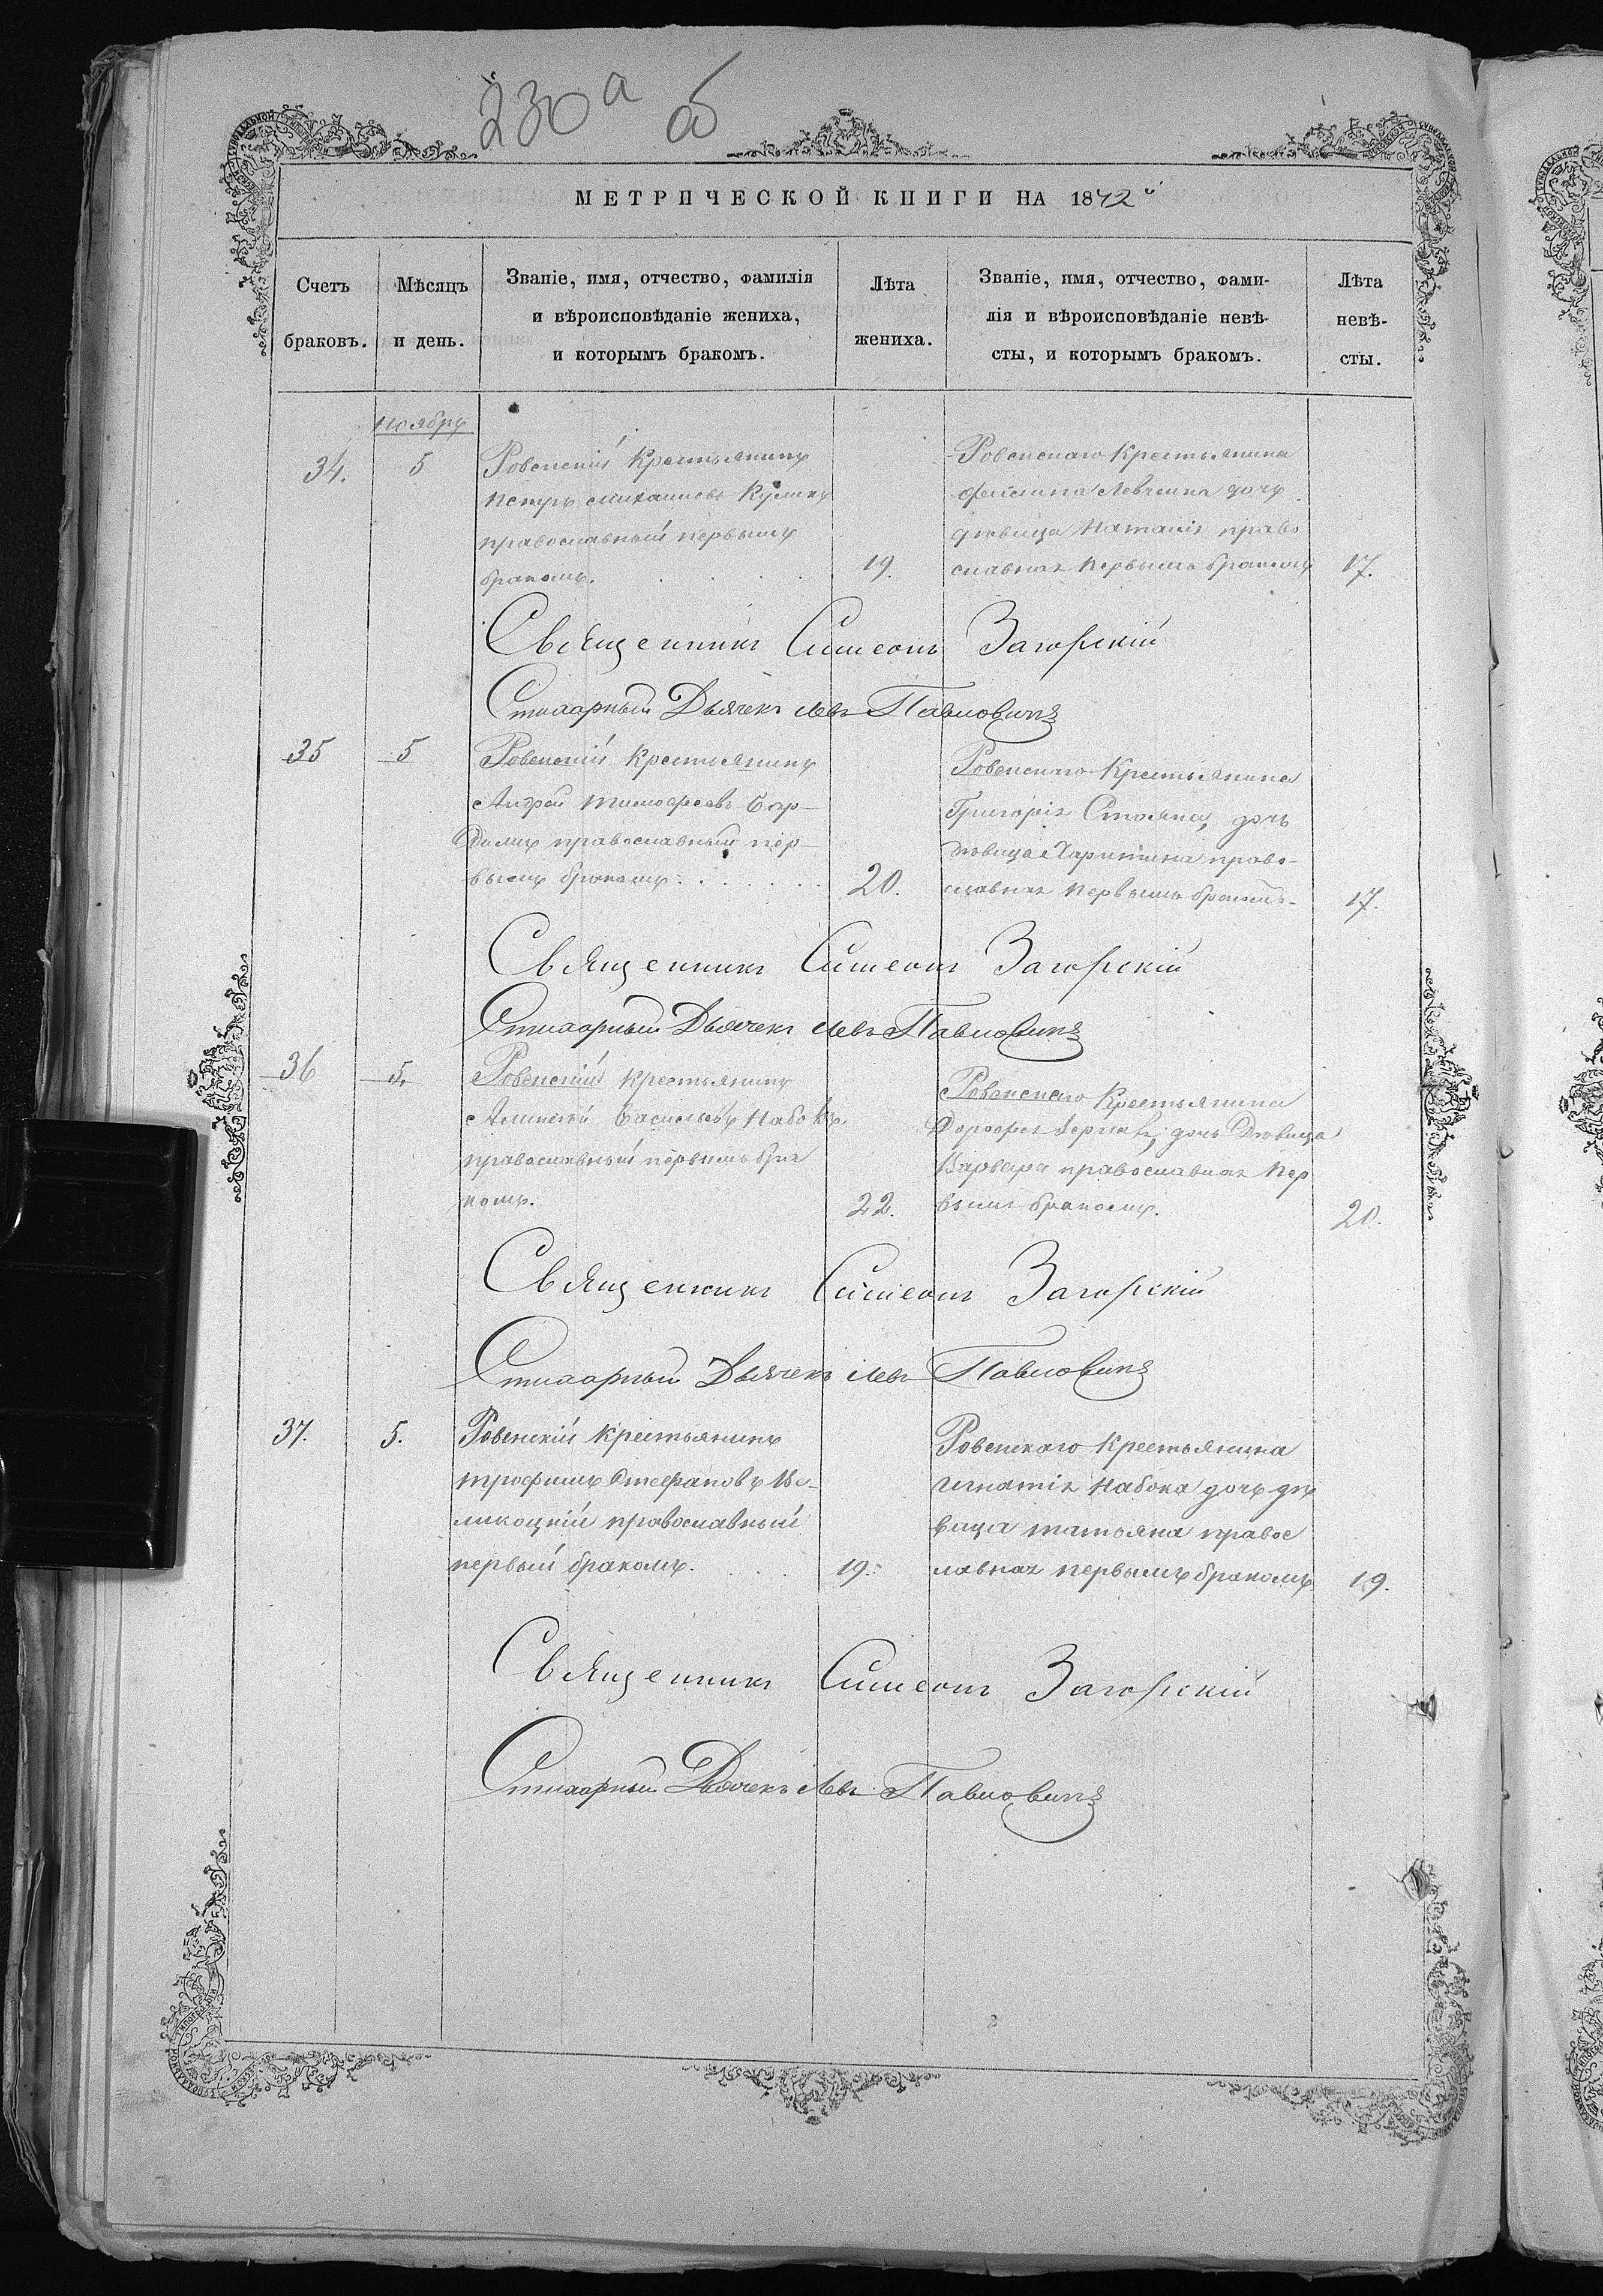 230 а об
МЕТРИЧЕСКОЙ КНИГИ НА 1872й
Счетъ браковъ.
Мѣсяцъ и день.
Званіе, имя, отчество, фамилія
и вѣроисповѣданіе жениха,
и которымъ бракомъ.
Лѣта жениха.
Званіе, имя, отчество, фами-
лія и вѣроисповѣданіе невѣ-
сты, и которымъ бракомъ.
Лѣта невѣ-
сты.
Ноябрь
34.
5
Ровенскій Крестьянинъ
Петръ Михаиловъ
православный первымъ
бракомъ.
19.
Ровенскаго Крестьянина
Левченка дочь
дѣвица Наталія право
славная первымъ бракомъ
17.
Священникъ Симеонъ Загорскій
Стихарный Дьячекъ Левъ Павловичъ
35
5
Ровенскій Крестьянинъ
Андрей Тимофеевъ Бар-
православный пер-
вымъ бракомъ
20.
Ровенскаго Крестьянина
Григорія Стояна, дочь
дѣвица Харитина право-
славная первымъ бракомъ
17.
Священникъ Симеонъ Загорскій
Стихарный Дьячекъ Левъ Павловичъ
36
5.
Ровенскій Крестьянинъ
Алексѣй Васильевъ Набокъ.
православный первымъ бра
комъ.
22.
Ровенскаго Крестьянина
Дорофея дочь Дѣвица
Варвара православная пер
вымъ бракомъ.
20.
Священникъ Симеонъ Загорскій
Стихарный Дьячекъ Левъ Павловичъ
37.
5.
Ровенскій Крестьянинъ
Трофимъ Стефановъ Ве-
ликоцкій православный
первый бракомъ.
19.
Ровенскаго Крестьянина
Игнатія Набока дочь дѣ
вица Татьяна правос
лавная первымъ бракомъ
19.
Священникъ Симеонъ Загорскій
Стихарный Дьячекъ Левъ Павловичъ